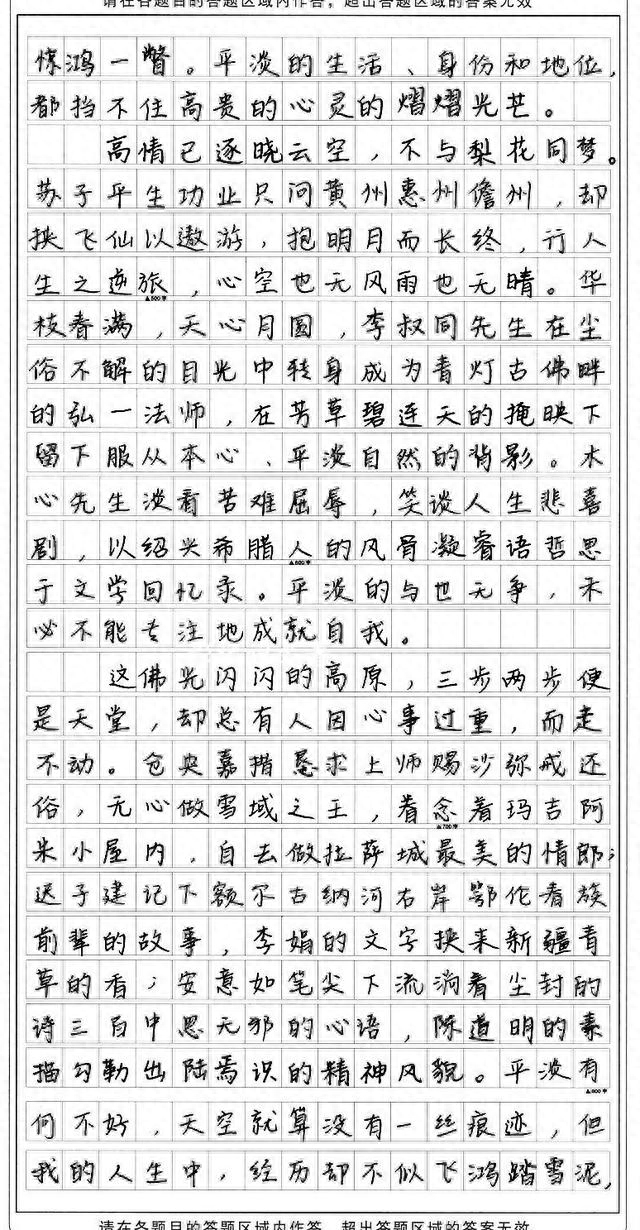 请在各题目的答题区域内作答，超出答题区域的答案无效
惊鸿一瞥。平淡的生活、身份和地位，
都挡不住高贵的心灵的熠熠光芒。
高情已逐晓云空，不与梨花同梦。
苏子平生功业只问黄州惠州儋州，却
挟飞仙以遨游，抱明月而长终，行人
生之逆旅，心空也无风雨也无晴。华
▲500字
枝春满，天心月圆，李叔同先生在尘
俗不解的目光中转身成为青灯古佛畔
的弘一法师，在芳草碧连天的掩映下
留下服从本心、平淡自然的背影。木
心先生淡看苦难屈辱，笑谈人生悲喜
剧，以绍兴希腊人的风骨凝睿语哲思
▲600字
于文学回忆录。平淡的与世无争，未
必不能专注地成就自我。
这佛光闪闪的高原，三步两步便
是天堂，却总有人因心事过重，而走
不动。仓央嘉措恳求上师赐沙弥戒还
俗，无心做雪域之王，眷念着玛吉阿
▲700字
米小屋内，自去做拉萨城最美的情郎；
迟子建记下额尔古纳河右岸鄂伦春族
前辈的故事，李娟的文字挟来新疆青
草的香；安意如笔尖下流淌着尘封的
诗三百中思无邪的心语，陈道明的素
描勾勒出陆焉识的精神风貌。平淡有
▲800字
何不好，天空就算没有一丝痕迹，但
我的人生中，经历却不似飞鸿踏雪泥，
请在各题目的答题区域内作答，超出答题区域的答案无效